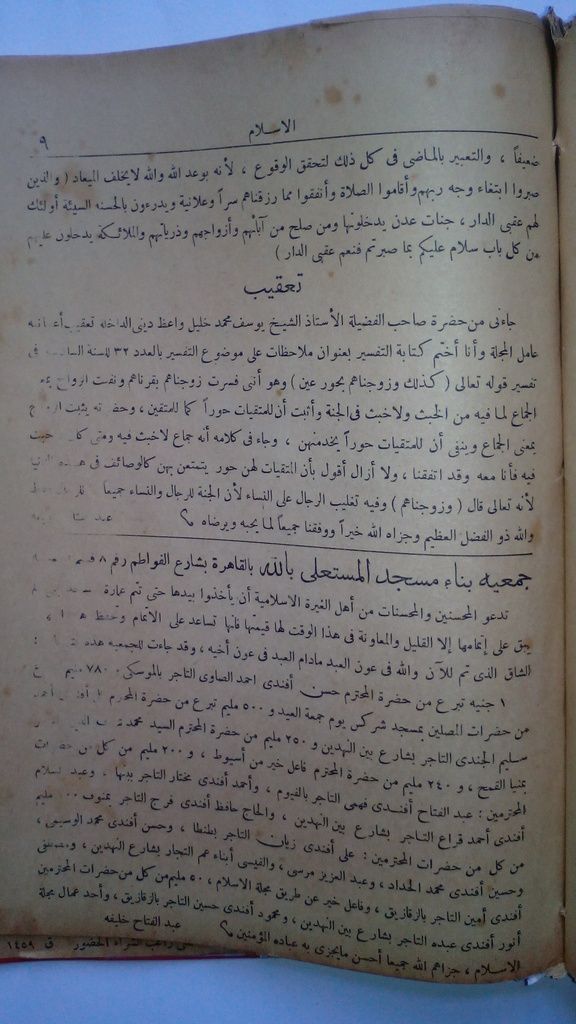 الاسلام
٩
ضعيفاً ، والتعبير بالماضى فى كل ذلك لتحقق الوقوع ، لأنه بوعد الله والله لايخلف الميعاد ( والذين
صبروا ابتغاء وجه ربهم وأقاموا الصلاة وأنفقوا مما رزقناهم سراً وعلانية ويدرءون بالحسنه السيئة أولئك
لهم عقبى الدار ، جنات عدن يدخلونها ومن صلح من آبائهم وأزواجهم وذرياتهم والملائكة يدخلون عليهم
من كل باب سلام عليكم بما صبرتم فنعم عقبى الدار )
تعقيب
جاءنى من حضرة صاحب الفضيلة الأستاذ الشيخ يوسف محمد خليل واعظ دينى الداخلة تعقيب
عامل المجلة وأنا أختم كتابة التفسير بعنوان ملاحظات على موضوع التفسير بالعدد ٣٢ للسنة فى
تفسير قوله تعالى ( كذلك وزوجناهم بحور عين ) وهو أنى فسرت زوجناهم بقرناهم ونفيت الزواج
الجماع لما فيه من الخبث ولاخبث فى الجنة وأثبت أن للمتقيات حوراً كما للمتقين ، يثبت
بمعنى الجماع وينفى أن للمتقيات حوراً يخدمنهن ، وجاء فى كلامه أنه جماع لاخبث فيه ومتى
فيه فأنا معه وقد اتفقنا ، ولا أزال أقول بأن المتقيات لهن حور يتمتعن بهن كالوصائف فى
لأنه تعالى قال ( وزوجناهم ) وفيه تغليب الرجال على النساء لأن الجنة للرجال والنساء جميعا
والله ذو الفضل العظيم وجزاه الله خيراً ووفقنا جميعاً لما يحبه ويرضاه
جمعيه بناء مسجد المستعلى بالله بالقاهرة بشارع الفواطم رقم ٨
تدعو المحسنين والمحسنات من أهل الغيرة الاسلامية أن يأخذوا بيدها حتى تتم عمارة
يبق على إتمامها إلا القليل والمعاونة فى هذا الوقت لها قيمتها فانها تساعد على الاتمام وتحفظ
الشاق الذى تم للآن والله فى عون العبد مادام العبد فى عون أخيه ، وقد جاءت للجمعيه هذه
١ جنيه تبرع من حضرة المحترم حسن أفندى احمد الصاوى التاجر بالموسكى ٧٨٠ مليم
من حضرات المصلين بمسجد شركس يوم جمعة العيد و ٥٠٠ مليم تبرع من حضرة المحترم
سليم الجندى التاجر بشارع بين النهدين و ٢٥٠ مليم من حضرة المحترم السيد محمد
بمنيا القمح ، و ٢٤٠ مليم من حضرة المحترم فاعل خير من أسيوط ، و ٢٠٠ مليم من كل من حضرات
المحترمين : عبد الفتاح أفندى فهمى التاجر بالفيوم ، وأحمد أفندى مختار التاجر ببنها ، وعبد السلام
أفندى أحمد قراع التاجر بشارع بين النهدين ، والحاج حافظ أفندى فرج التاجر بمنوف مليم
من كل من حضرات المحترمين : على أفندى زيان التاجر بطنطا ، وحسن أفندى محمد الوسيمى ،
وحسين أفندى محمد الحداد ، وعبد العزيز مرسى ، والفيسى أبناء عم التجار بشارع النهدين ،
أفندى أمين التاجر بالزقازيق ، وفاعل خير عن طريق مجلة الاسلام ، ٥٠ مليم من كل من حضرات المحترمين
أنور أفندى عبده التاجر بشارع بين النهدين ، ومحمود أفندى حسين التاجر بالزقازيق ، وأحد عمال مجلة
الاسلام ، جزاهم الله جميعا أحسن مايجزى به عباده المؤمنين
عبد الفتاح خليفه
راغب الشراء الحضور ق ١٤٥٩